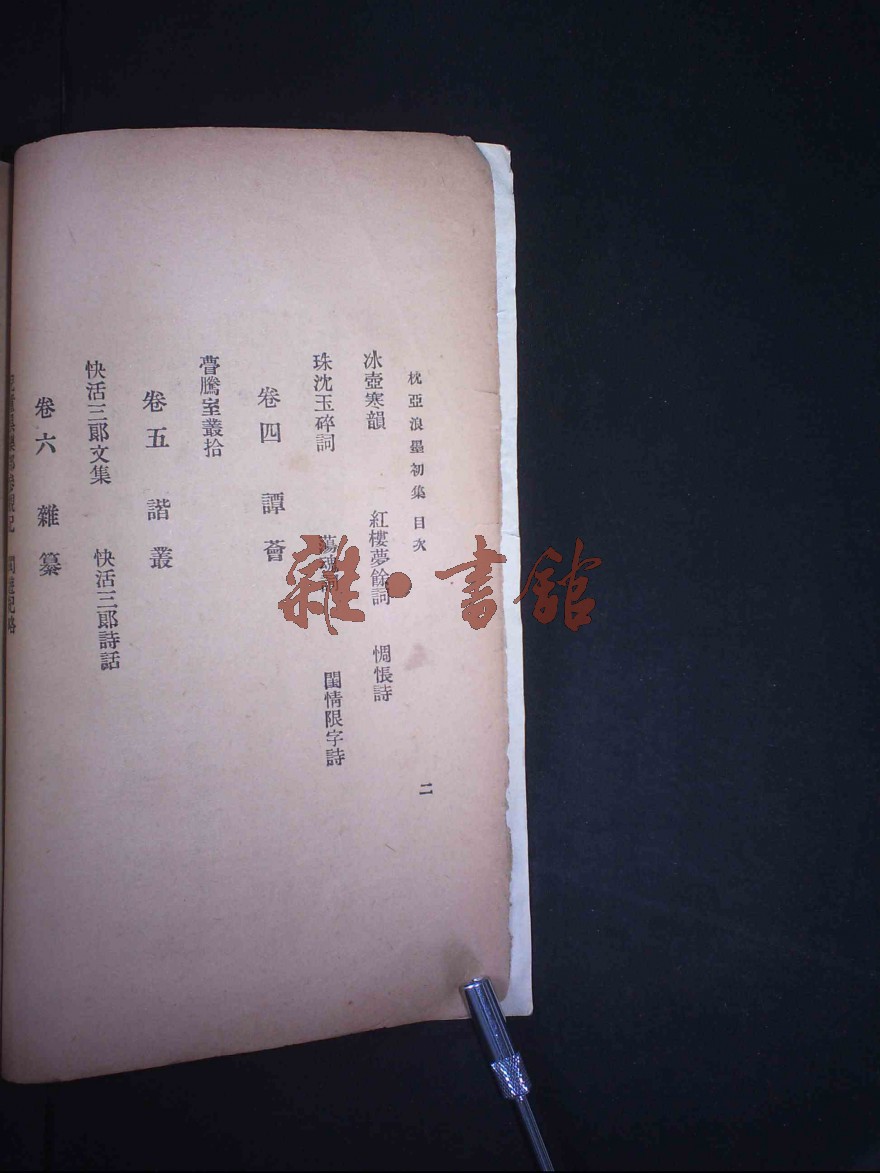 枕亞浪墨初集 目次
二
冰壺寒韻 紅樓夢餘詞 惆悵詩
珠沈玉碎詞 蕩魂詞 閨情限字詩
卷四 譚薈
瞢騰室叢拾
卷五 諧叢
快活三郞文集 快活三郞詩話
卷六 雜纂
雜·書館